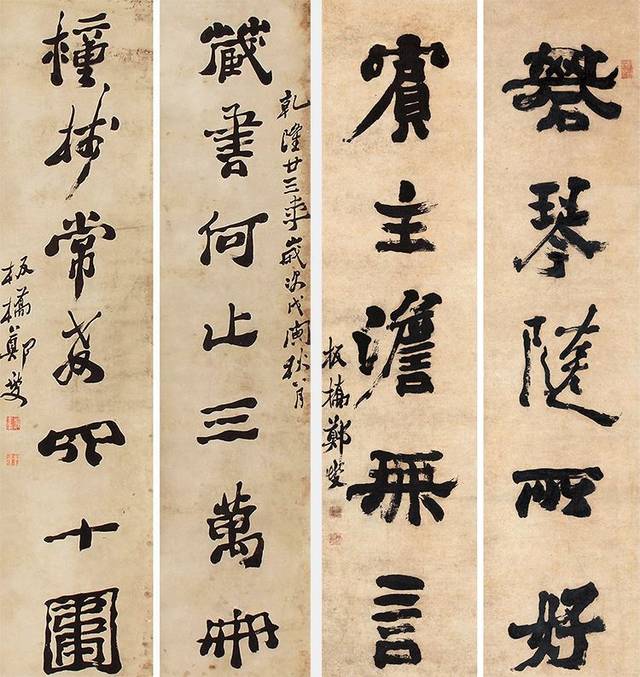 琴隨所好
賓主澹無言
板橋鄭燮
藏書何止三萬冊
乾隆廿三年歲次戊寅秋八月
種樹常教四十圍
板橋鄭燮